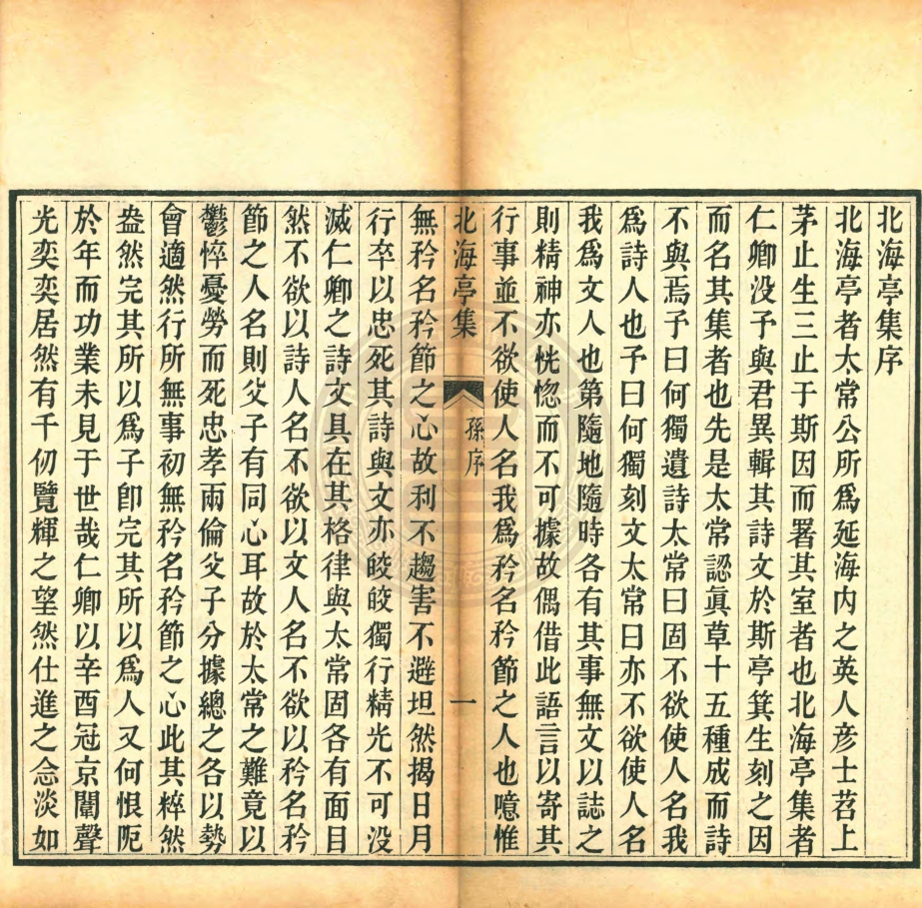 北海亭集序
北海亭者太常公所爲延海内之英人彦士苕上
茅止生三止于斯因而署其室者也北海亭集者
仁卿没予與君異輯其詩文於斯亭箕生刻之因
而名其集者也先是太常認眞草十五種成而詩
不與焉予曰何獨遺詩太常曰固不欲使人名我
爲詩人也予曰何獨刻文太常曰亦不欲使人名
我爲文人也第隨地隨時各有其事無文以誌之
則精神亦恍惚而不可據故偶借此語言以寄其
行事並不欲使人名我爲矜名矜節之人也噫惟
北海亭集 孫序 一
無矜名矜節之心故利不趨害不避坦然揭日月
行卒以忠死其詩與文亦皎皎獨行精光不可没
滅仁卿之詩文具在其格律與太常固各有面目
然不欲以詩人名不欲以文人名不欲以矜名矜
節之人名則父子有同心耳故於太常之難竟以
鬱悴憂勞而死忠孝兩倫父子分據總之各以勢
會適然行所無事初無矜名矜節之心此其粹然
盎然完其所以爲子卽完其所以爲人又何恨阨
於年而功業未見于世哉仁卿以辛酉冠京闈聲
光奕奕居然有千仞覽輝之望然仕進之念淡如